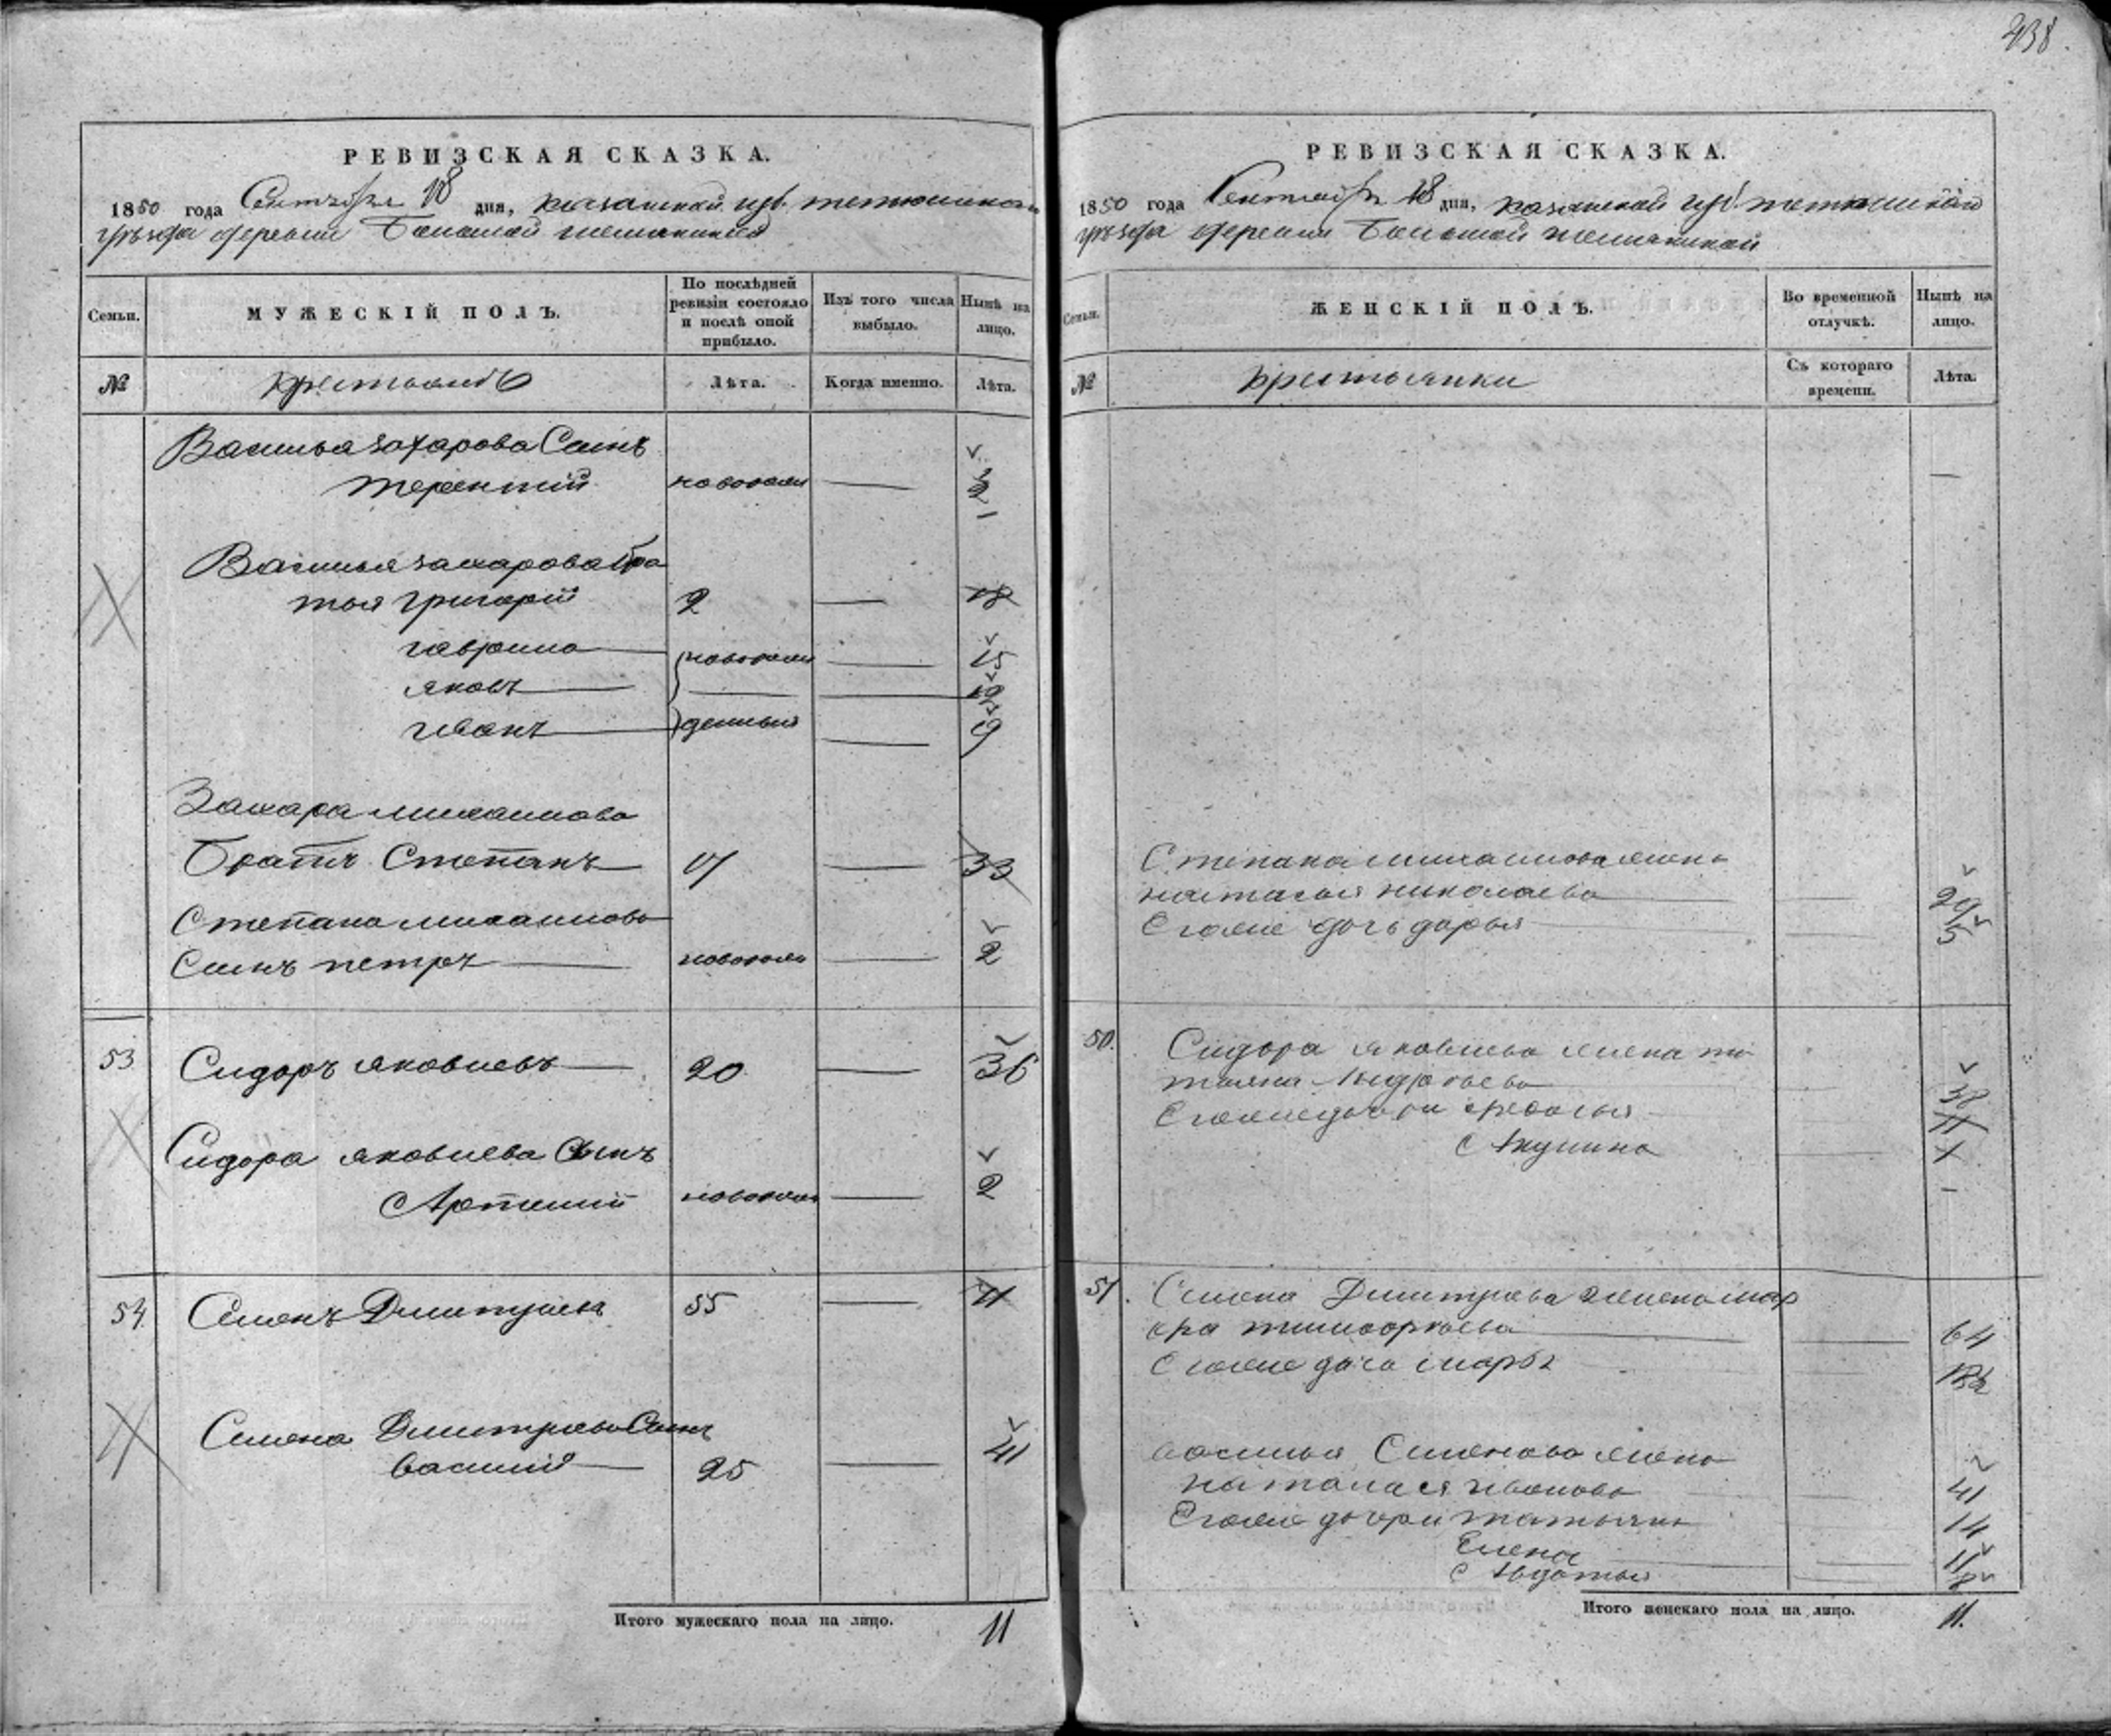 438
РЕВИЗСКАЯ СКАЗКА.
1850 года Сентября 18 дня, казанской губ. тетюшскаго
уѣзда деревни Большой
Семьи.
МУЖЕСКІЙ ПОЛЪ.
По послѣдней ревизіи состояло и послѣ оной прибыло.
Изъ того числа выбыло.
Нынѣ на лицо.
№
крестьянѣ
Лѣта.
Когда именно.
Лѣта.
Василья захарова Сынъ
терентий новорожд
Василья захарова бра
тья григорий 2 18
гаврила новорож 15
яковъ 12
иванъ денныя 9
Захара михаилова
Братъ Степанъ 17 33
Степана михаилова
Сынъ петръ новорож 2
53 Сидоръ яковлевъ 20 36
Сидора яковлева Сынъ
Артемий новорож 2
54 Семенъ Дмитриевъ 55 71
Семена Дмитриева Сынъ
василий 25 41
Итого мужескаго пола на лицо. 11
РЕВИЗСКАЯ СКАЗКА.
1850 года Сентября 18 дня, казанской губ. тетюшскаго
уѣзда деревни Большой
Семьи.
ЖЕНСКІЙ ПОЛЪ.
Во временной отлучкѣ.
Нынѣ на лицо.
№
крестьянки
Съ котораго времени.
Лѣта.
Степана михаилова жена
настасья николаева 29
Егоже дочь дарья 5
50. Сидора яковлева жена та
тьяна 38
Егоже дочери
Акулина
51. Семена Дмитриева жена мар
фа 64
Егоже дочь марья
василья Семенова жена
наталья иванова 41
Егоже дочери татьяна 14
Елена 11
Авдотья 8
Итого женскаго пола на лицо. 11.